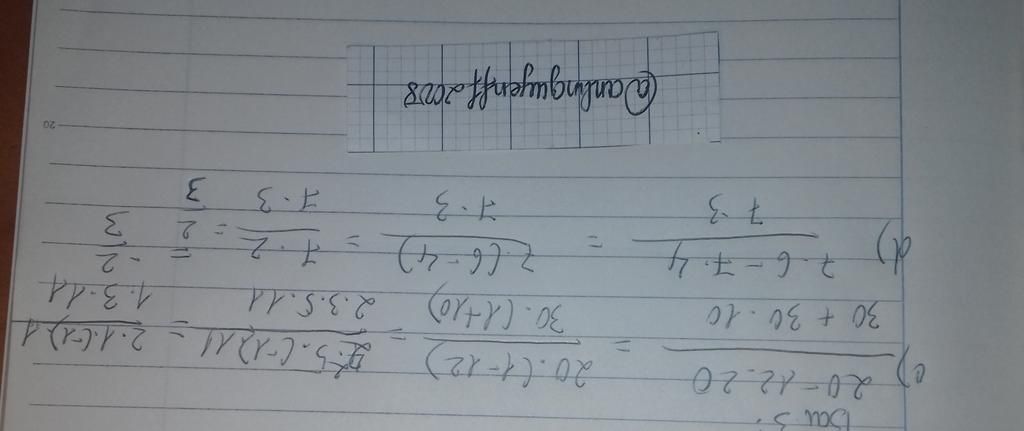 Bài 3:
c) \frac{20-12.20}{30+30.10} = \frac{20.(1-12)}{30.(1+10)} = \frac{2².5.(-1)11}{2.3.5.11} = \frac{2.1.(-1)1}{1.3.11}
= \frac{-2}{3}
d) \frac{7.6-7.4}{7.3} = \frac{7.(6-4)}{7.3} = \frac{7.2}{7.3} = \frac{2}{3}
@anhnguyenff2008
20